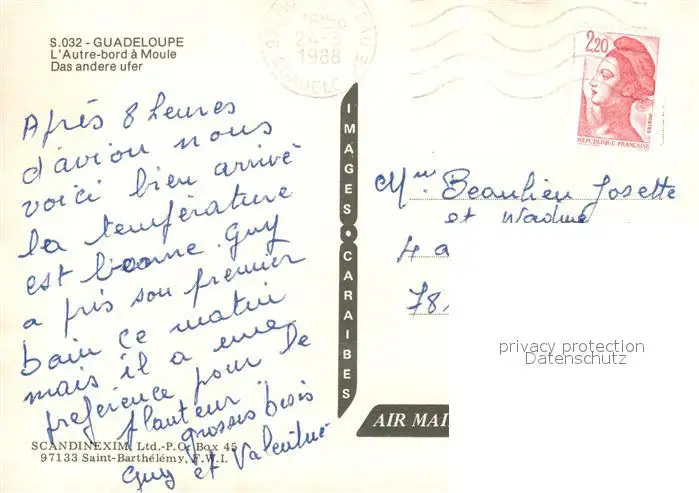 S.032 - GUADELOUPE
L'Autre-bord à Moule
Das andere ufer
1988
2,20
POSTES
REPUBLIQUE FRANÇAISE
Après 8 heures
d'avion nous
voici bien arrivé
la température
est bonne. Guy
a pris son premier
bain ce matin
mais il a une
preference pour le
planteur
grosses bises
Guy et Valentine
IMAGES CARAIBES
Beaulieu Josette
et
4 a
78.
privacy protection
Datenschutz
AIR MAI
SCANDINEXIM, Ltd.-P.O. Box 45
97133 Saint-Barthélémy, F.W.I.